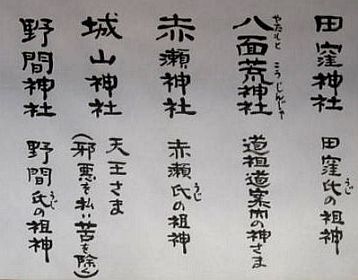 田窪神社 田窪氏の祖神
八面荒神社 道祖道案内の神さま
赤瀬神社 赤瀬氏の祖神
城山神社 天王さま
(邪悪を払い苦を除く)
野間神社 野間氏の祖神